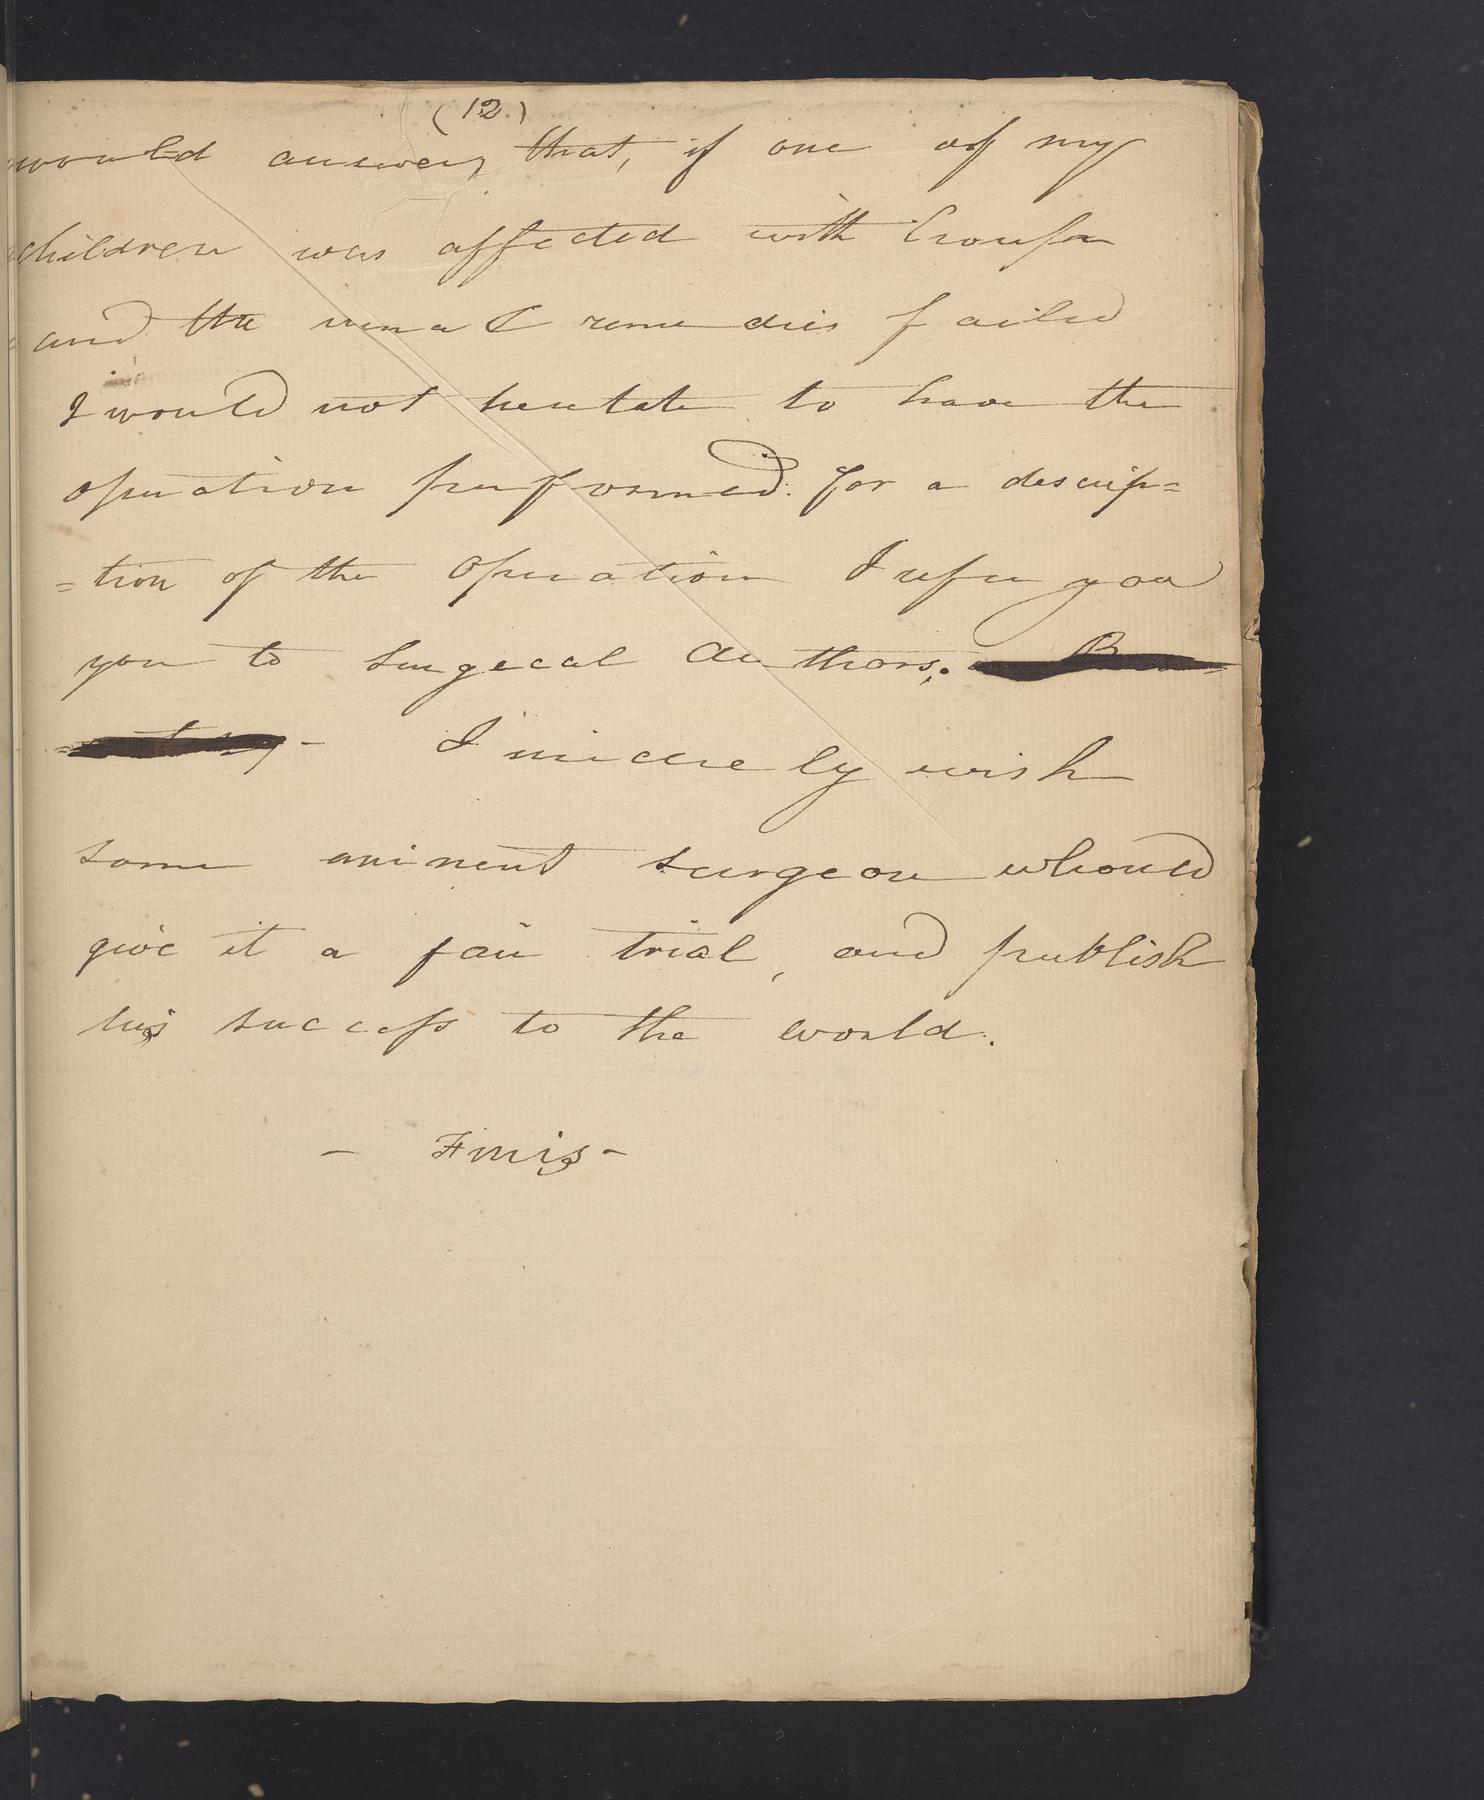 (12.)
would answer, that, if one of my
children was affected with Croup
and the usual remedies failed
I would not hesitate to have the
operation performed. For a descrip=
=tion of the operation I refer you
you to Surgecal Authors.
I sincerely wish
some eminent surgeon whould
give it a fair trial, and publish
his success to the world.
- Finis -